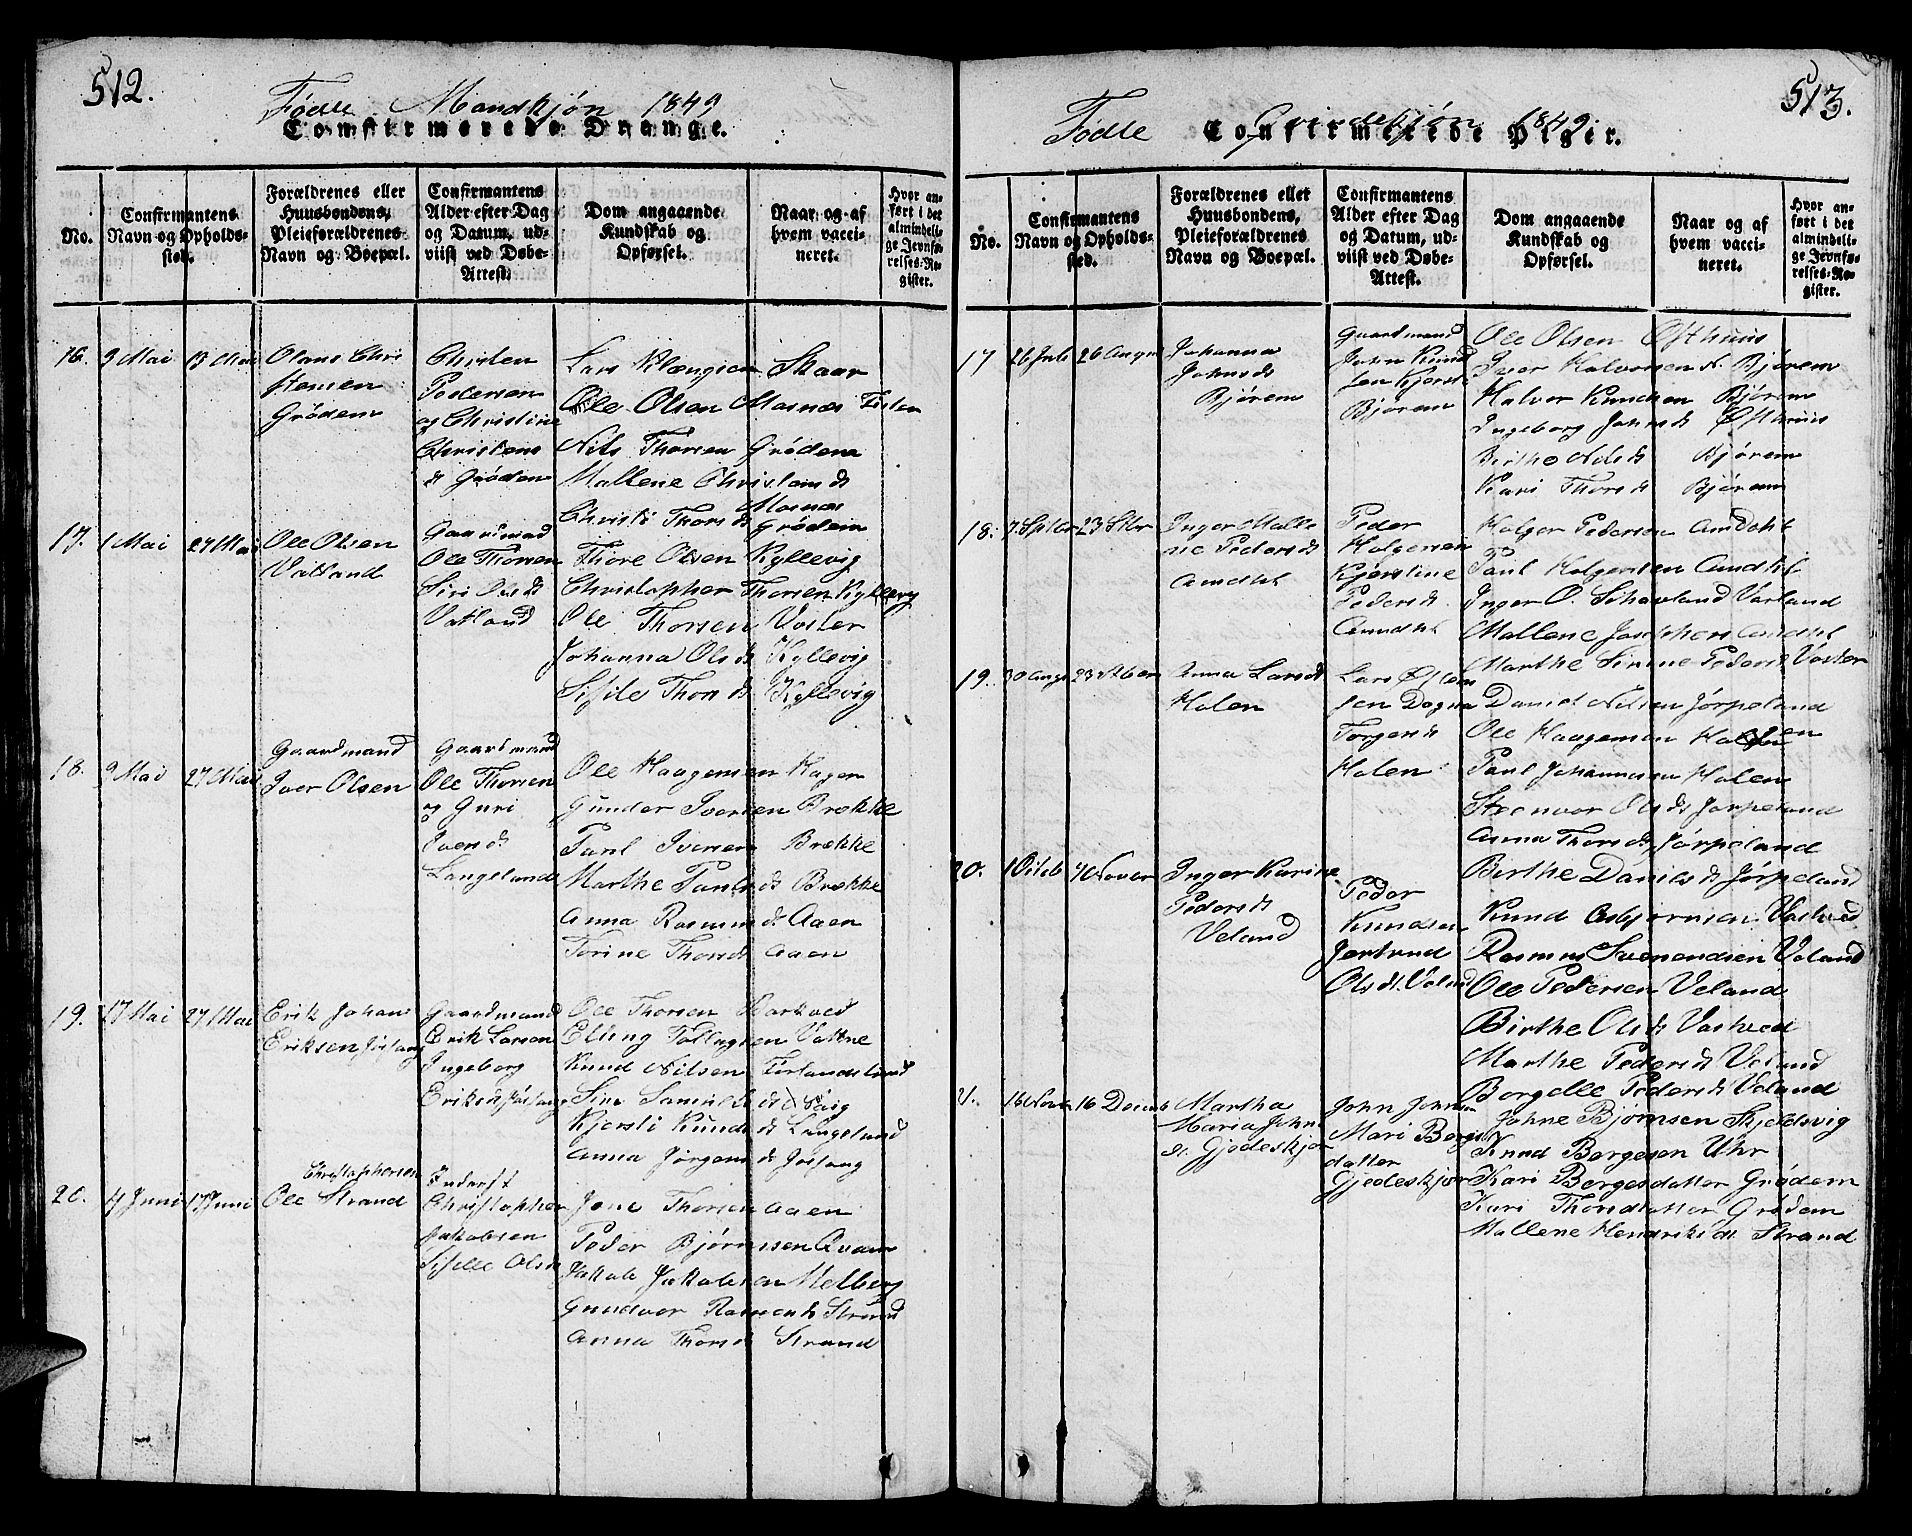 512.
Fødte Mandkjøn 1849
Confirmerede Drenge.
No.
Confirmantens Navn og Opholds-sted.
Forældrenes eller Huusbondens, Pleieforældrenes Navn og Boepæl.
Confirmantens Alder efter Dag og Datum, ud-viist ved Døbe-Attest.
Dom angaaende Kundskab og Opførsel.
Naar og af hvem vacci-neret.
Hvor an-ført i det almindeli-ge Jevnfø-relses-Re-gister.
16. 9 Mai 13 Mai
Olaus Chri
stensen
Grødem
Christen
Pedersen
og Christine
Christens
d Grødem
Lars Skaar
Ole Olsen Mosnæs
Nils Thorsen Grødem
Mallene Christens d
Mosnæs
Christi Thors d Grødem
17. 1 Mai 27 Mai
Ole Olsen
Vatland
Gaardmand
Ole Thorsen
Siri Ols d
Vatland
Thore Olsen Kyllevig
Christopher Thorsen Kyllevig
Ole Thorsen Voster
Johanna Ols d Kyllevig
Sisile Thors d Kyllevig
18. 9 Mai 27 Mai
Gaardmand
Iver Olsen
Gaardmand
Ole Thorsen
og Guri
Ivers d
Langeland
Ole Haagensen Hagen
Gunder Iversen Brække
Paul Iversen Brække
Marthe Pauls d Brække
Anna Rasmus d Aaen
Torine Thors d Aaen
19. 17 Mai 27 Mai
Erik Johan
Eriksen Jøsang
Gaardmand
Erik Larsen
Ingeborg
Eriks d Jøsang
Ole Thorsen Barkved
Elling Vatne
Knud Nilsen
Sine Samuels d
Kjersti Knuds d Langeland
Anna Jørgens d Jøsang
20. 4 Juni 17 Juni
Christophersen
Ole Strand
Inderst
Christopher
Jakobsen
Sisille Ols d
Jone Thorsen Aaen
Peder Bjørnsen Qvam
Jakob Jakobsen Melberg
Gundvor Rasmus d Strand
Anna Thors d Strand
513.
Fødte Qvindekjøn 1849
Confirmerede Piger.
No.
Confirmantens Navn og Opholds-sted.
Forældrenes eller Huusbondens, Pleieforældrenes Navn og Boepæl.
Confirmantens Alder efter Dag og Datum, ud-viist ved Døbe-Attest.
Dom angaaende Kundskab og Opførsel.
Naar og af hvem vacci-neret.
Hvor an-ført i det almindeli-ge Jevnfø-relses-Re-gister.
17 26 Juli 26 August
Johanna
Johns d
Bjørem
Gaardmand
John Knud
sen Kjersti
Bjørem
Ole Olsen Østhuus
Iver Halvorsen Bjørem
Halvor Knudsen Bjørem
Ingeborg Johns d Østhuus
Birthe Nils d Bjørem
Kari Thors d Bjørem
18. 7 Septbr 23 Stbr
Inger Malle
ne Peders d
Amdahl
Peder
Holgersen
Kjerstine
Peders d.
Amdahl
Holger Pedersen Amdahl
Paul Holgersen Amdahl
Inger O. Vatland
Mallene Josephsen Amdahl
Marthe Serine Peders d Voster
19. 30 Augs 23
Anna Lars d
Holen
Lars
sen Dagna
Torgers d
Holen
Daniel Nilsen Jørpeland
Ole Haagensen Holen
Paul Johannesen Holen
Steenvor Ols d Jørpeland
Anna Thors d Jørpeland
Birthe Daniels d Jørpeland
20. 1 Octob 4 Nover
Inger Karine
Peders d
Veland
Peder
Knudsen
Jertrud
Ols d. Veland
Knud Asbjørnsen Vasved
Rasmus Svenendsen Veland
Ole Pedersen Veland
Birthe Ols d Vasved
Marthe Peders d Veland
Borgelle Peders d Veland
21. 16 Novem 16 Decemb
Martha
Maria John
d. Gjedeskjer
John Johnsen
Mari Bergs
datter
Gjedeskjer
Johne Bjørnsen Skjeldsvig
Knud Bergesen Uhr
Kari Bergesdatter Grødem
Kari Thorsdatter Grødem
Mallene Henriks d. Strand